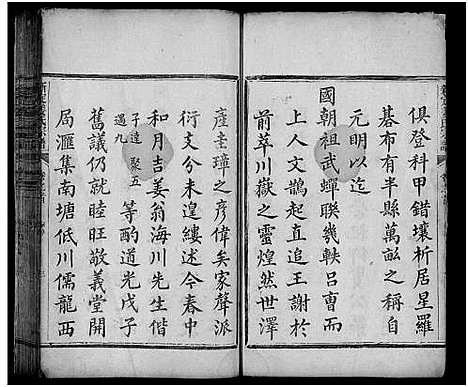 俱登科甲錯壤析居星羅
棊布有半縣萬畝之稱自
元明以迄
國朝祖武蟬聯幾軼呂曹而
上人文鵲起直追王謝於
前萃川嶽之靈煌然世澤
產圭璋之彥偉矣家聲派
衍支分未遑縷述今春中
和月吉姜翁海川先生偕
子達 聚五
遇九 等酌道光戊子
舊議仍就睦旺敬義堂開
局滙集南塘低川儒龍西